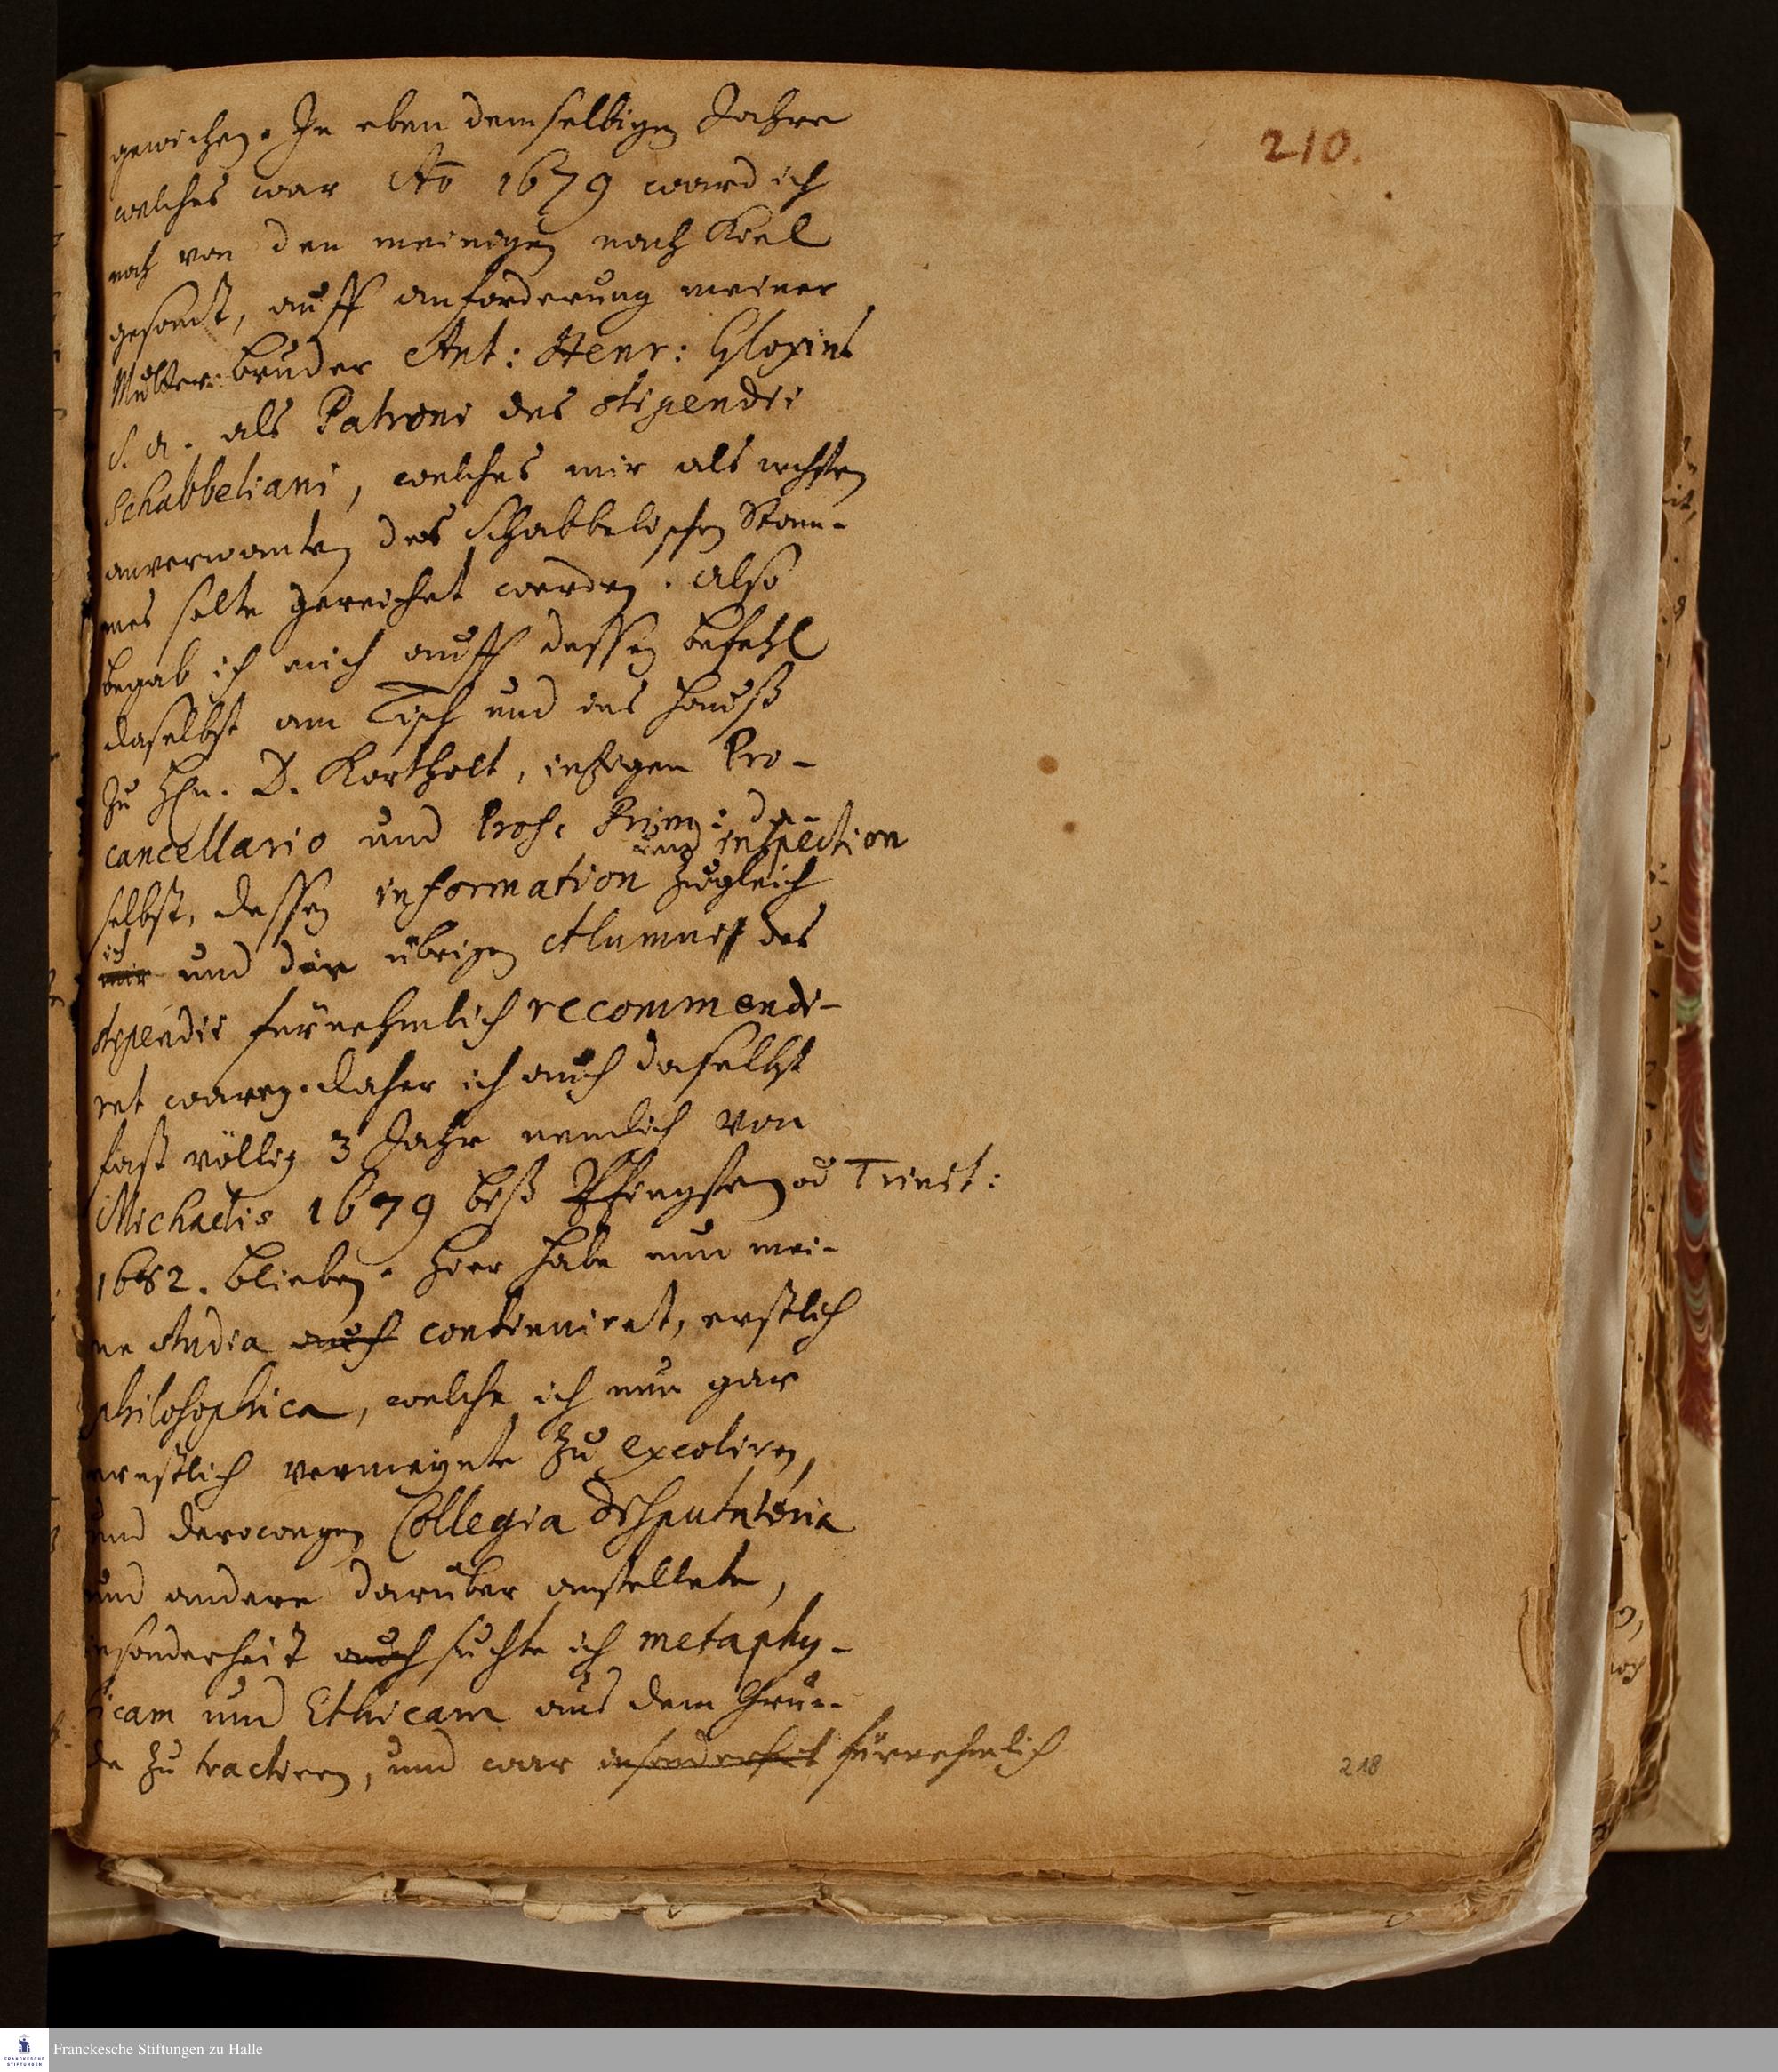 210.
gewichen. In eben demselbigen Jahre
welches war Aō 1679 ward ich
noch von den meinigen nach Kiel
gesandt, auff anforderung meiner
Mutter bruder Ant: Henr: Gloxins
S. a. als Patroni des stipendii
Schabbeliani, welches mir als nechsten
anverwanten des Schabbelischen Stam-
mes solte gereichet werden. Also
begab ich mich auff dessen befehl
daselbst am Tisch und ins Hauß
zu Hn. D. Kortholt, itzigen Pro-
cancellario und Prof. Prim: da-
und inspection
selbst, dessen information zugleich
ich
mir und die übrigen Alumni des
stipendii fürnehmlich recommendi-
ret waren. Daher ich auch daselbst
fast völlig 3 Jahr nemlich von
Michaelis 1679 biß Pfingsten od Trinit:
1682. blieben. Hier habe nun mei-
ne studia auch continuiret, erstlich
philosophica, welche ich nun gar
ernstlich vermeynte zu excoliren,
und deroweegen Collegia disputatoria
und andere darüber anstellete,
insonderheit auch suchte ich metaphy-
sicam und Ethicam aus dem Grun-
de zu tractiren, und war insonderheit fürnehmlich
218
Franckesche Stiftungen zu Halle
FRANCKESCHE
STIFTUNGEN